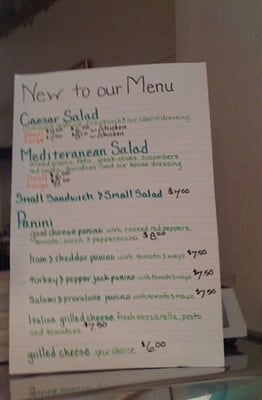 New to our Menu
Caesar Salad
croutons & our caesar dressing
Small w/chicken
Large w/chicken
Mediteranean Salad
mixed greens, feta, greek olives, cucumbers
red onion, tomatoes and our house dressing
Small
Large
Small Sandwich & Small Salad $7.00
Panini
goat cheese panino with roasted red peppers,
tomato, onion & pepperoncini $8.00
ham & cheddar panino with tomato & mayo $7.50
turkey & pepper jack panino with tomato & mayo $7.50
Salami & provalone panino with tomato & mayo $7.50
Italian grilled cheese fresh mozzarella, pesto
and tomatoes $7.50
grilled cheese your choice $6.00